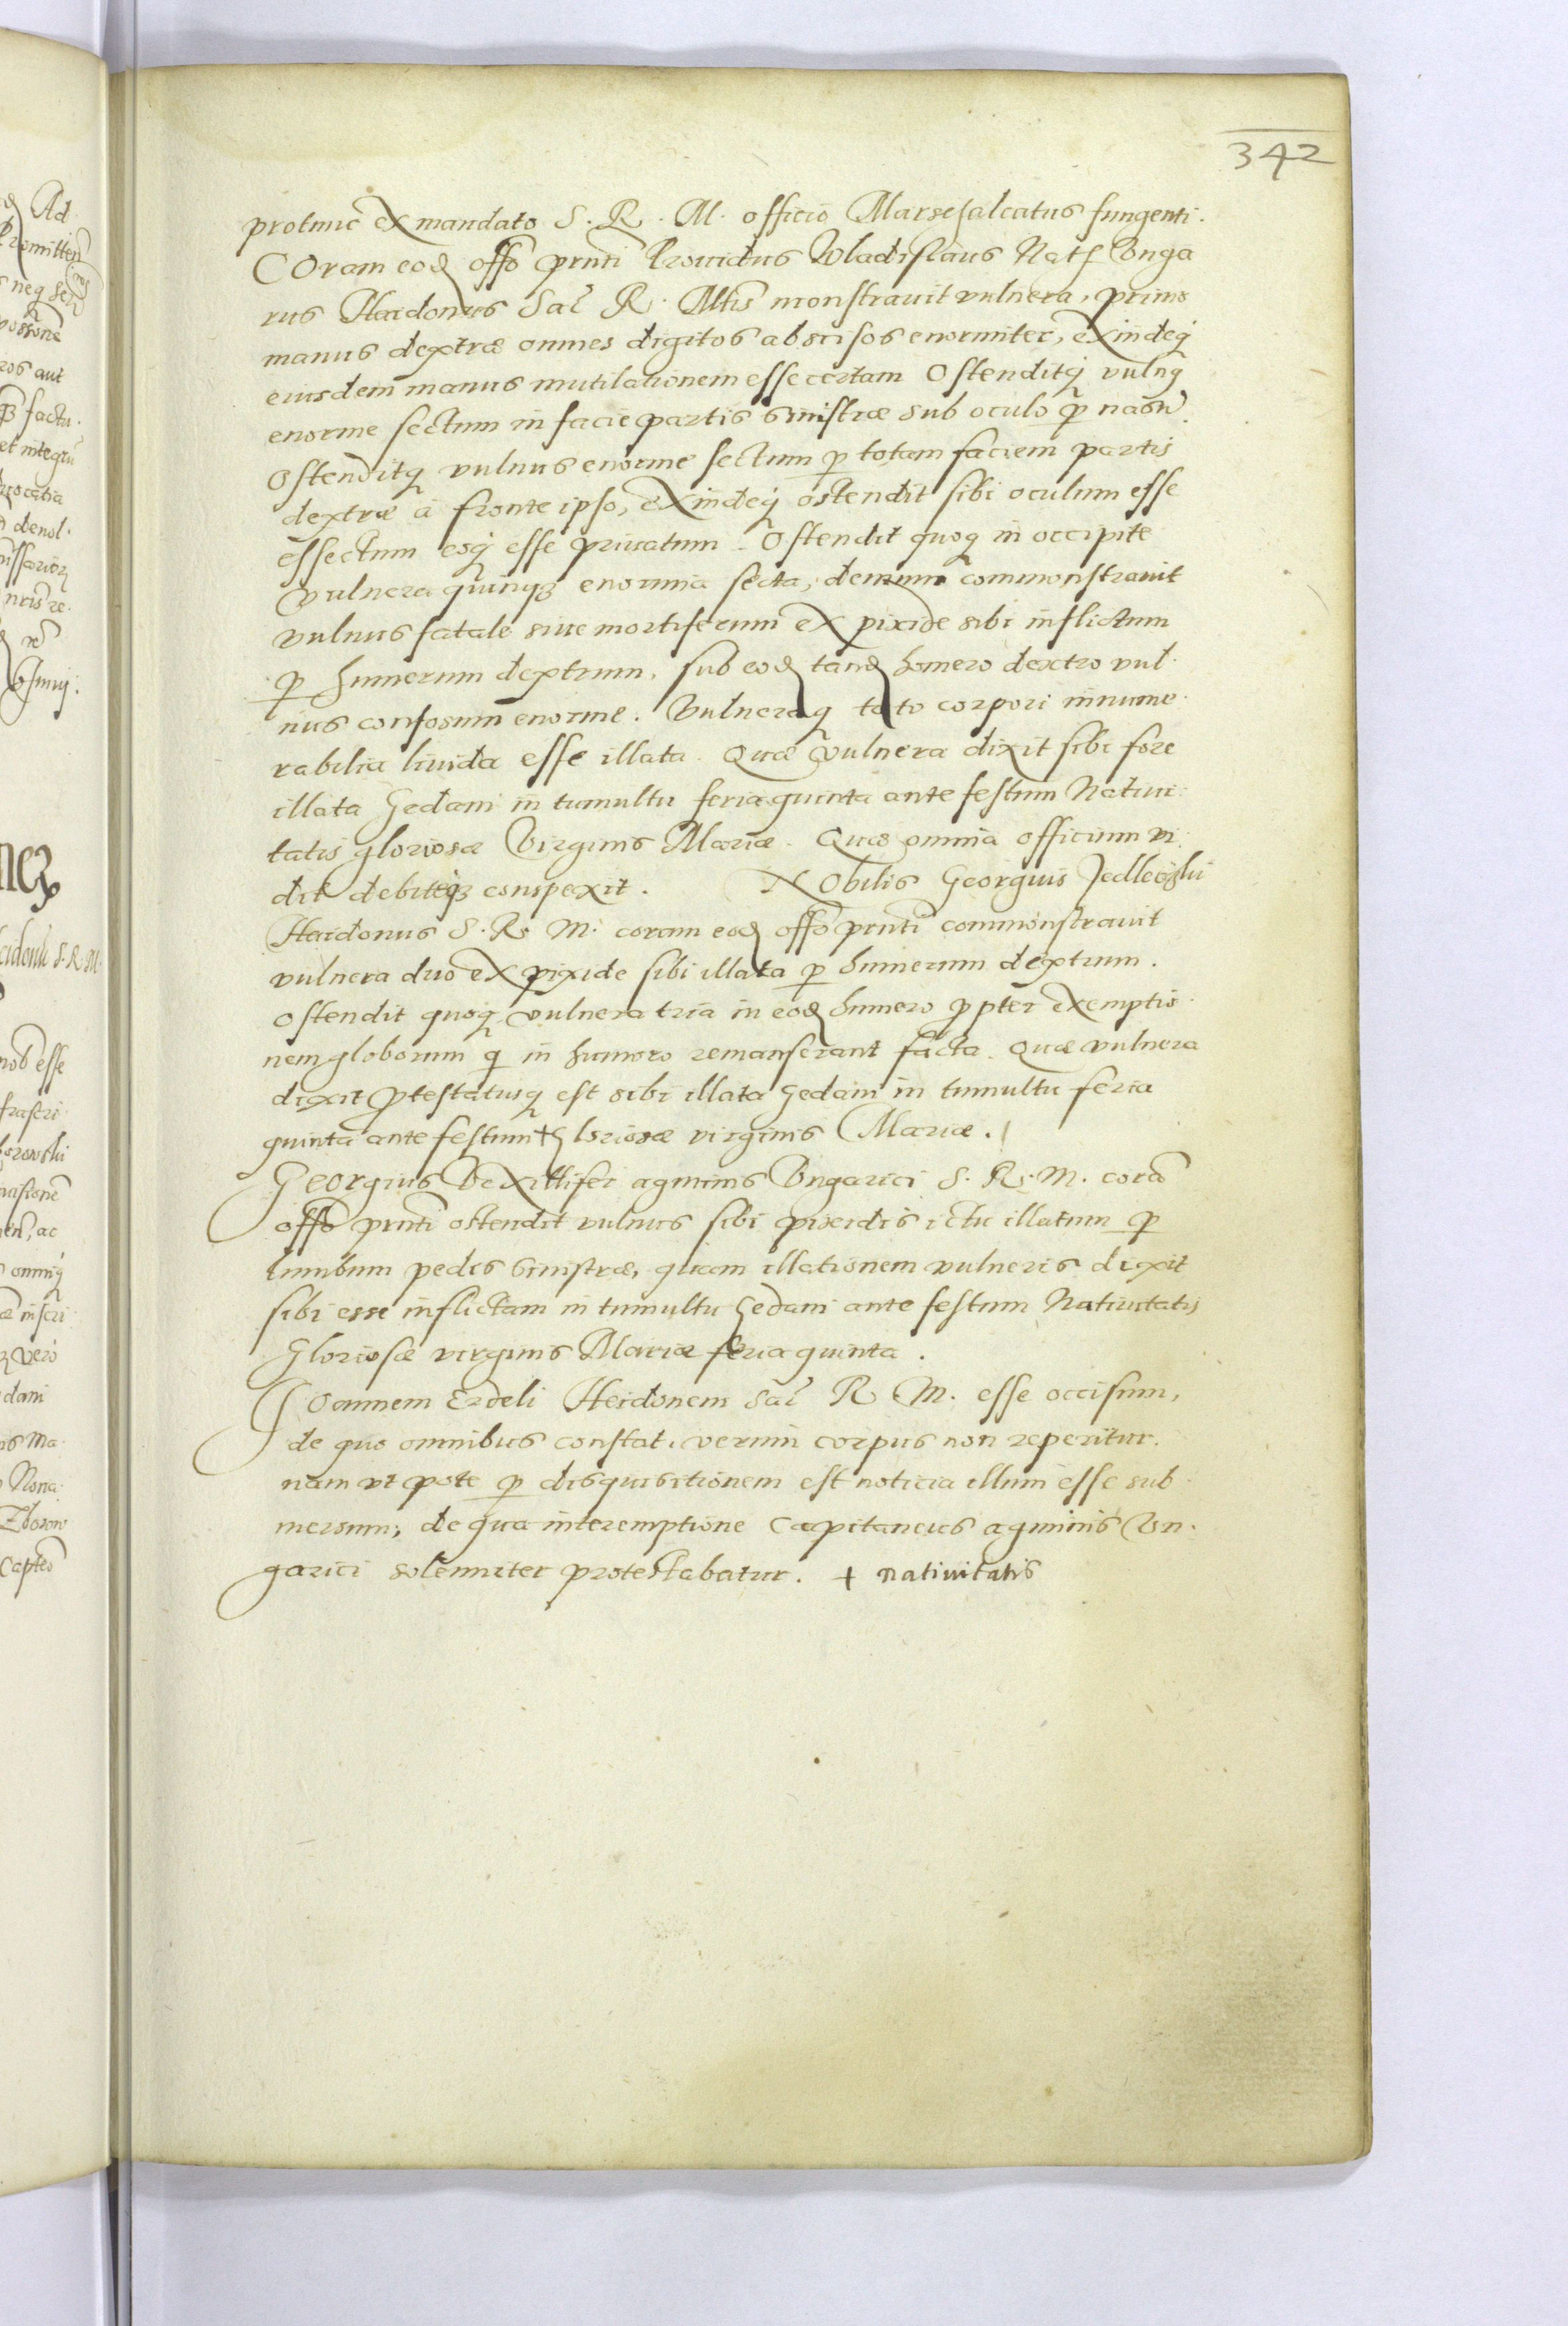 342
protunc ex mandato S. R. M. officio Marschalcatus fungenti.
COram eod offo prnti Providus Wladislaus Nat Unga
rus Haidonus Sal R. Mtis monstravit vulnera, primo
manus dextræ omnes digitos abscisos enormiter, exindeq
eiusdem manus mutilationem esse certam Ostenditq vulnq
enorme sectum in facie partis sinistræ sub oculo p nasū.
Ostenditq vulnus enorme sectum p totam faciem partis
dextræ à fronte ipso, exindeq ostendit sibi oculum esse
essectum eoq esse privatum. Ostendit quoq in occipite
vulnera quinq enormia secta, demum commonstravit
vulnus fatale sive mortiferum ex pixide sibi inflictum
p humerum dextrum, sub eod tand homero dextro vul-
nus confosum enorme. Vulneraq toto corpori innume-
rabilia livida esse illata. Quæ vulnera dixit sibi fore
illata Gedani in tumultu feria quinta ante festum Nativi-
tatis gloriosæ Virginis Mariæ. Quæ omnia officium vi-
dit debiteq conspexit. NObilis Georgius Jedleczki
Haidonus S. R. M. coram eod offo prnti commonstravit
vulnera duo ex pixide sibi illata p humerum dextrum.
Ostendit quoq vulnera tria in eod humero ppter exemptio-
nem globorum q in humero remanserant facta. Quæ vulnera
dixit ptestatusq est sibi illata Gedani in tumultu feria
quinta ante festum + Gloriosæ virginis Mariæ.
GEORgius Vexillifer agminis Ungarici S. R. M. corā
offo prnti ostendit vulnus sibi pixidis ictu illatum p
lumbum pedis sinistræ, quam illationem vulneris dixit
sibi esse inflictam in tumultu Gedani ante festum Nativitatis
Gloriosæ virginis Mariæ feria quinta.
JOannem Erdeli Heidonem Sal R M. esse occisum,
de quo omnibus constat, verum corpus non reperitur.
nam ut pote p disquisitionem est noticia illum esse sub-
mersum, de qua interemptione Capitaneus agminis Un-
garici solenniter protestabatur. + nativitatis